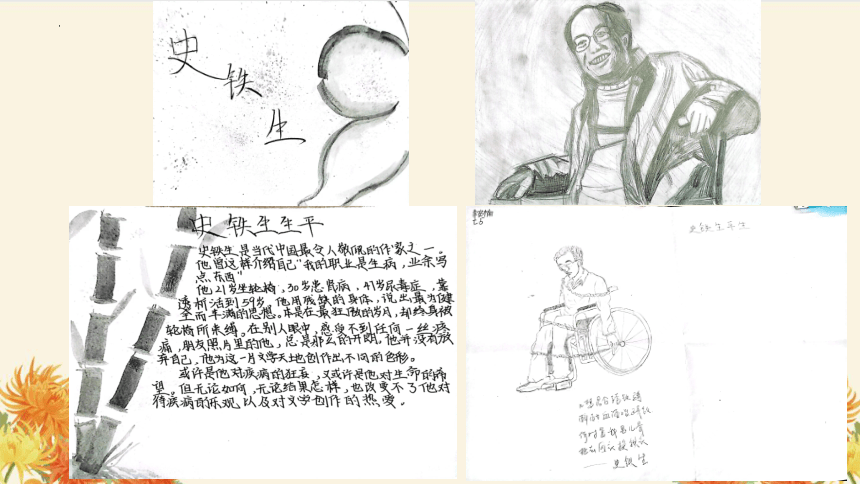 史
铁
生
史铁生生平
史铁生是当代中国最令人敬佩的作家之一。
他曾这样介绍自己“我的职业是生病，业余写
点东西”
他21岁坐轮椅，30岁患肾病，47岁尿毒症，靠
透析活到59岁，他用残缺的身体，说出最为健
全而丰满的思想。本是在最狂傲的岁月，却终身被
轮椅所束缚。在别人眼中，感受不到任何一丝疼
痛，朋友照片里的他，总是那么的开朗。他并没有放
弃自己，他为这一片文学天地创作出不同的色彩。
或许是他对疾病的狂妄，又或许是他对生命的希
望。但无论如何，无论结果怎样，也改变不了他对
待疾病的乐观以及对文学创作的热爱。
七5
史铁生平生
——史铁生